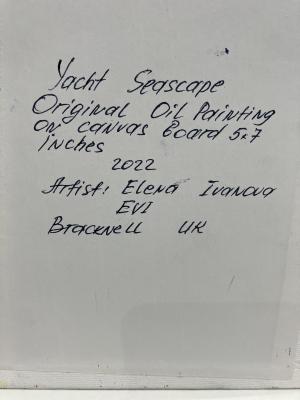 Yacht Seascape
Original Oil Painting
on canvas board 5x7
inches
2022
Artist: Elena Ivanova
EVI
Bracknell UK